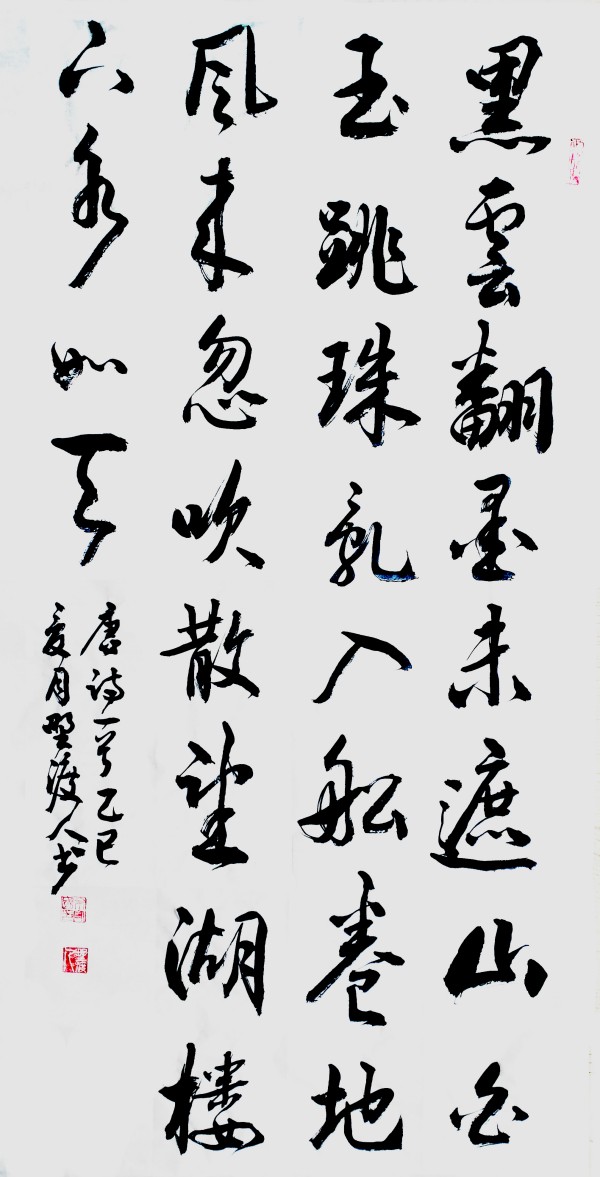 黑雲翻墨未遮山白
玉跳珠乱入船卷地
風来忽吹散望湖樓
下水如天
唐诗一首乙巳
夏月野渡人书